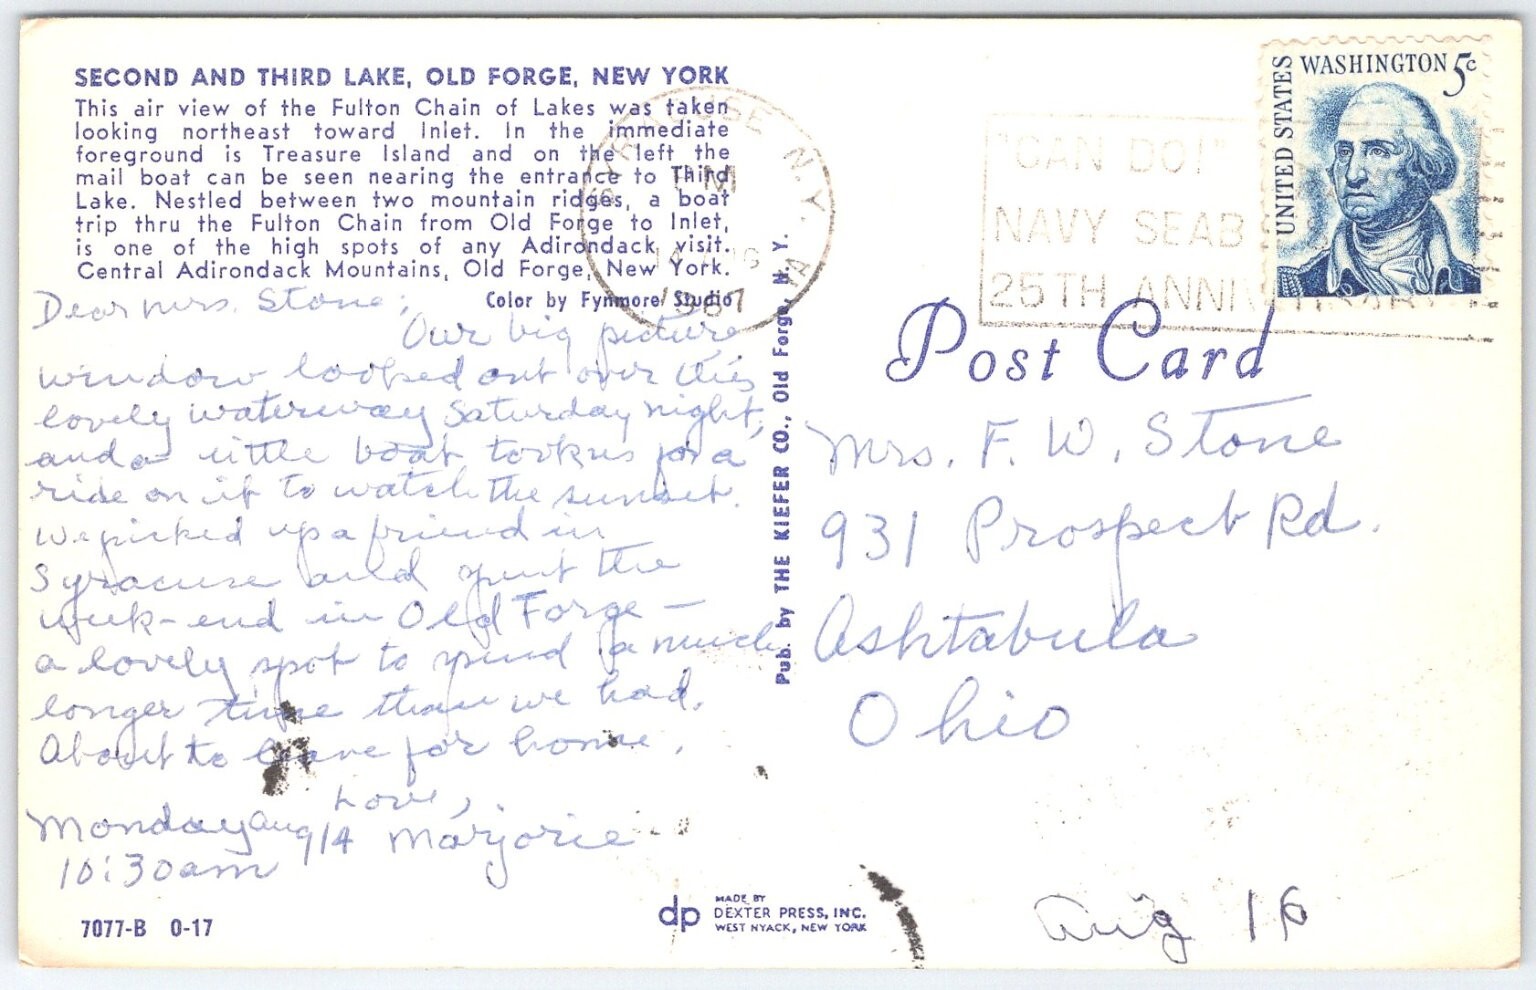 SECOND AND THIRD LAKE, OLD FORGE, NEW YORK
This air view of the Fulton Chain of Lakes was taken
looking northeast toward Inlet. In the immediate
foreground is Treasure Island and on the left the
mail boat can be seen nearing the entrance to Third
Lake. Nestled between two mountain ridges, a boat
trip thru the Fulton Chain from Old Forge to Inlet,
is one of the high spots of any Adirondack visit.
Central Adirondack Mountains, Old Forge, New York.
Color by Fynmore Studio
Dear Mrs. Stone;
Our big picture
window looked out over this
lovely waterway Saturday night,
and a little boat took us for a
ride on it to watch the sunset.
We picked up a friend in
Syracuse and spent the
week-end in Old Forge —
a lovely spot to spend a much
longer time than we had.
About to leave for home.
Love,
Marjorie
Monday Aug 14
10:30am
7077-B 0-17
Pub. by THE KIEFER CO., Old Forge, N. Y.
dp
MADE BY
DEXTER PRESS, INC.
WEST NYACK, NEW YORK
SYRACUSE N.Y.
PM
14 AUG
1967
"CAN DO!"
NAVY SEAB
25TH ANNIVERSARY
UNITED STATES
WASHINGTON 5c
Post Card
Mrs. F. W. Stone
931 Prospect Rd.
Ashtabula
Ohio
Aug 16